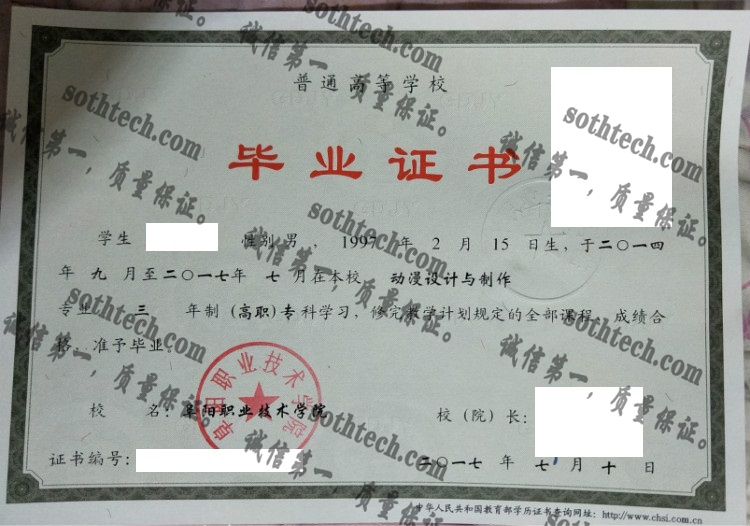 普通高等学校
毕业证书
学生 性别 男 ，1997 年 2 月 15 日生，于二〇一四
年 九 月至二〇一七年 七 月在本校 动漫设计与制作
专业 三 年制（高职）专科学习，修完教学计划规定的全部课程，成绩合
格，准予毕业。
校 名：阜阳职业技术学院 校（院）长：
证书编号： 二〇一七 年 七 月 十 日
中华人民共和国教育部学历证书查询网址：http://www.chsi.com.cn
阜阳职业技术学院
sothtech.com
诚信第一，质量保证。
sothtech.com
诚信第一，质量保证。
sothtech.com
诚信第一，质量保证。
sothtech.com
诚信第一，质量保证。
sothtech.com
诚信第一，质量保证。
sothtech.com
诚信第一，质量保证。
sothtech.com
诚信第一，质量保证。